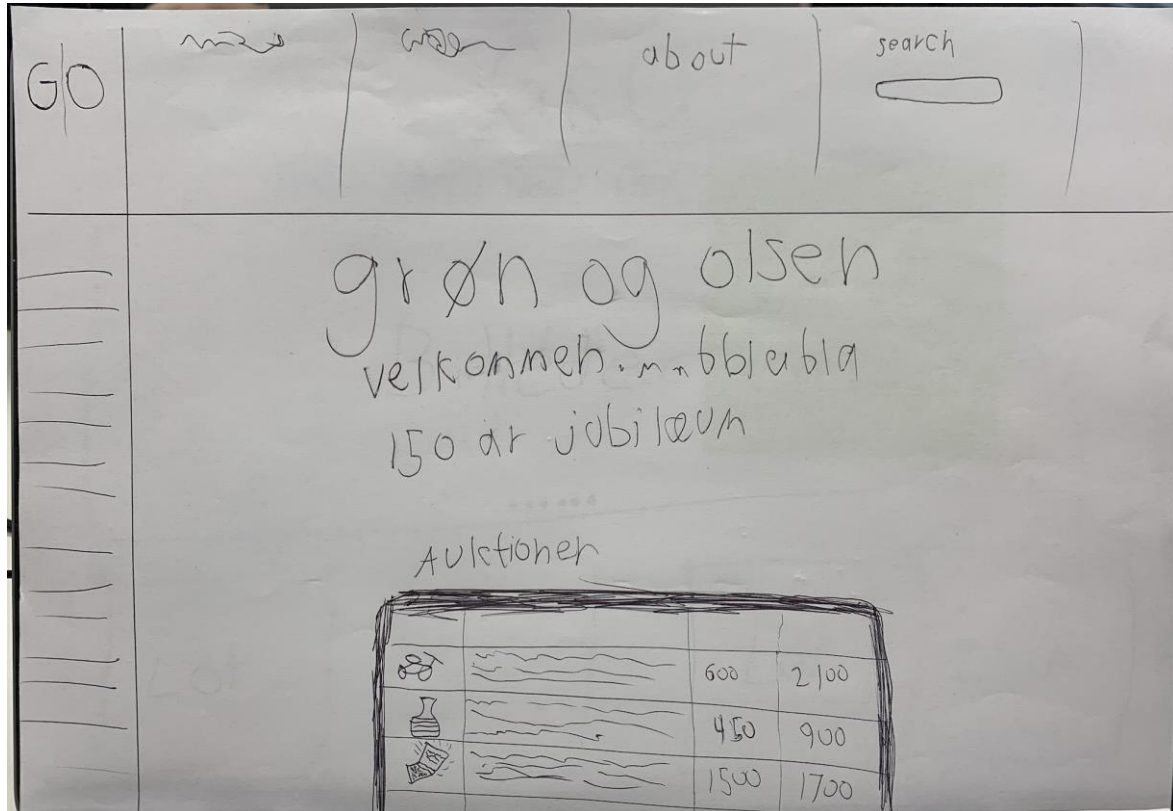 G|O
about
search
grøn og olsen
velkommen . . . bblabla
150 år jubilæum
Auktioner
600 2100
450 900
1500 1700